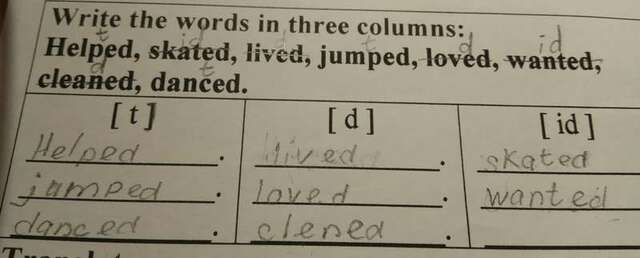 Write the words in three columns:
id t id t d id
Helped, skated, lived, jumped, loved, wanted,
d t
cleaned, danced.
[t] [d] [id]
Helped. lived. skated
jumped. loved. wanted
danced. clened.